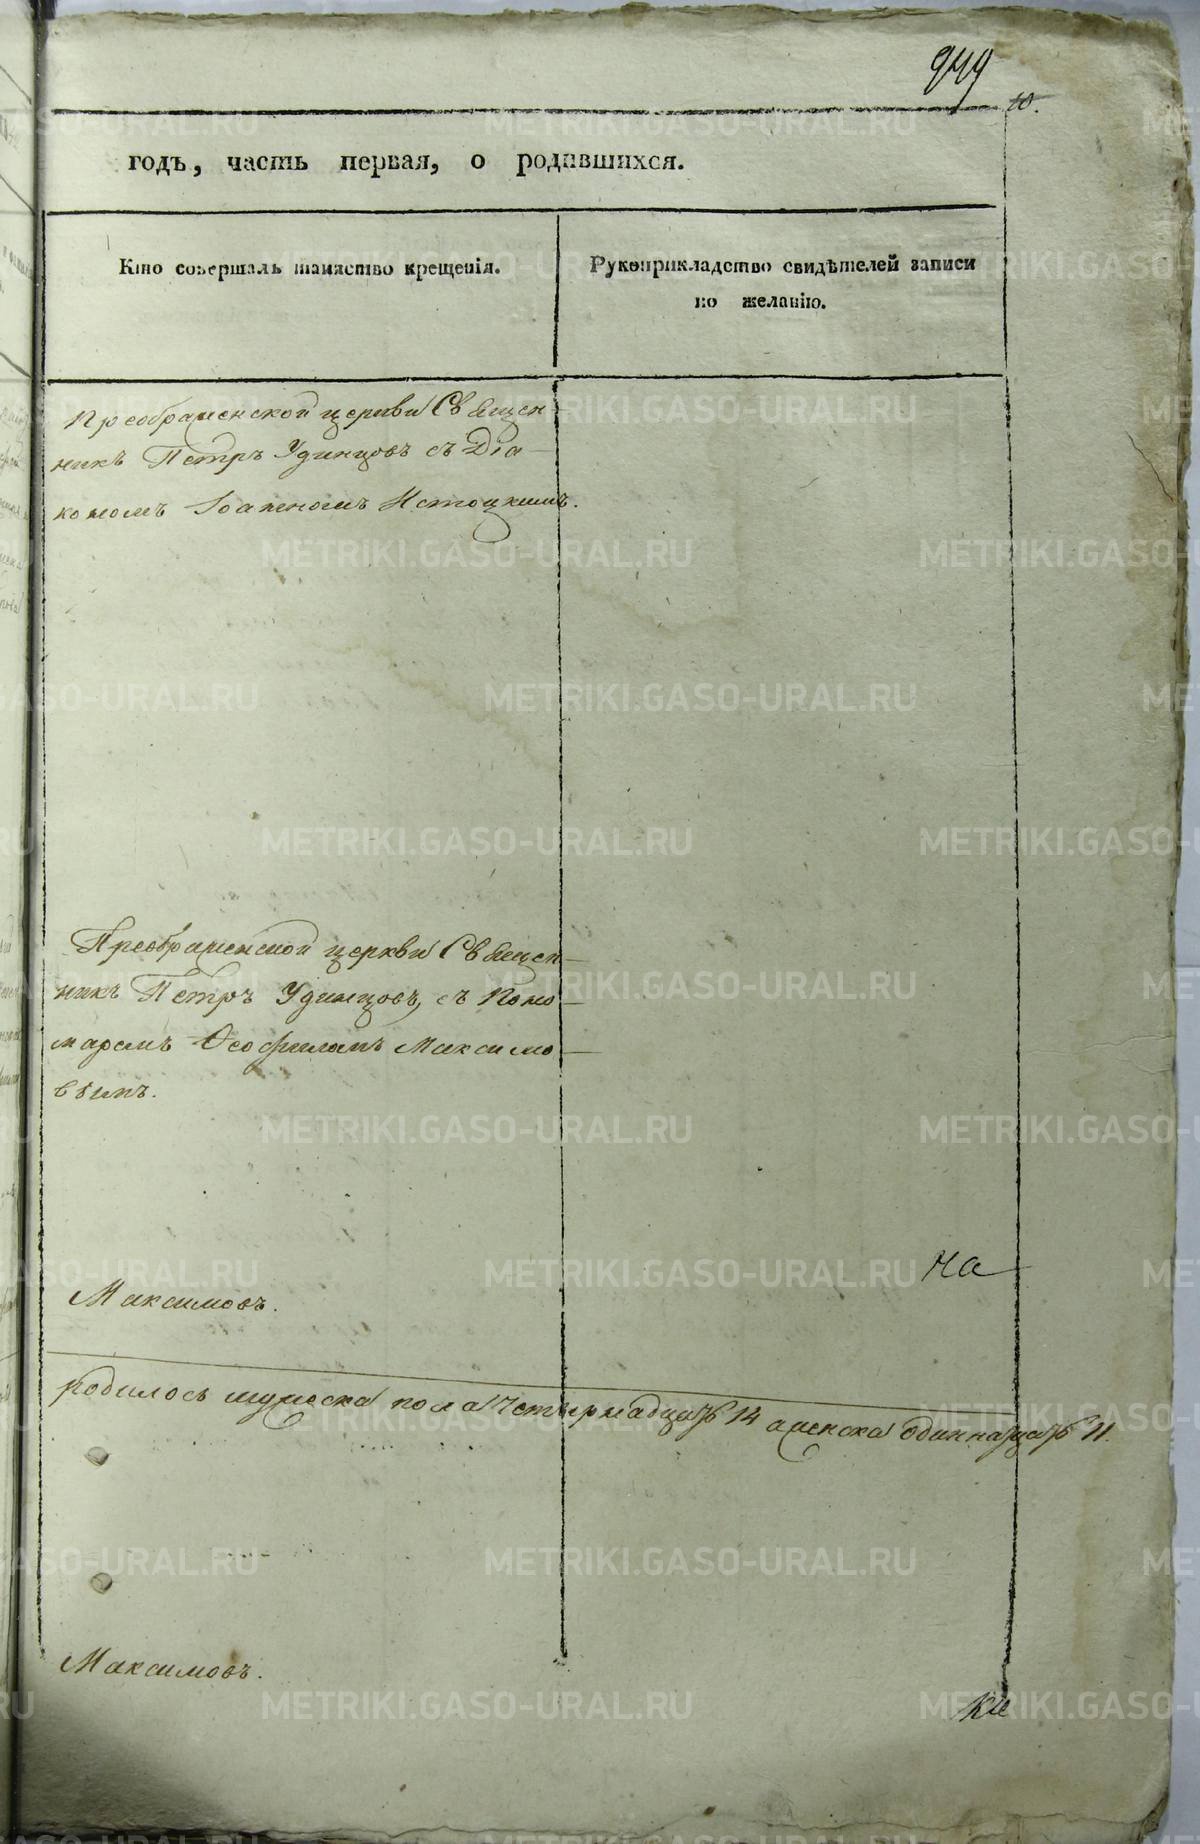 949
10.
годъ, часть первая, о родившихся.
Кто совершалъ таинство крещенія.
Рукоприкладство свидѣтелей записи
по желанію.
Преображенской церкви Священ-
никъ Петръ Удинцовъ съ Діа-
кономъ Іоанномъ Истоцкимъ.
Преображенской церкви Священ-
никъ Петръ Удинцовъ, съ Поно-
маремъ Ѳеофиломъ Максимо-
вымъ.
На
Максимовъ.
родилось мужеска пола четырнадцать 14 а женска одиннадцать 11.
Максимовъ.
METRIKI.GASO-URAL.RU